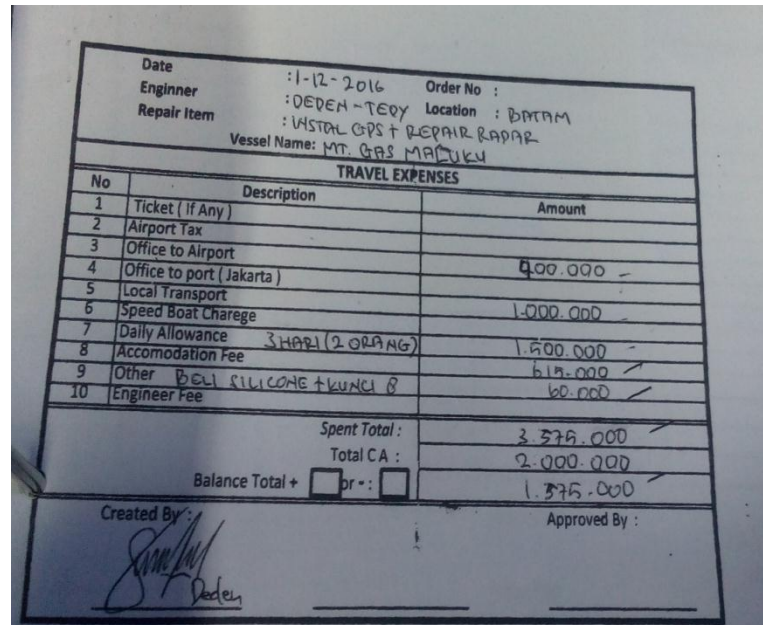 Date :1-12-2016 Order No :
Enginner :DEDEN-TEDY Location : BATAM
Repair Item :INSTAL GPS + REPAIR RADAR
Vessel Name: MT. GAS MALUKU
TRAVEL EXPENSES
No Description Amount
1 Ticket ( If Any )
2 Airport Tax
3 Office to Airport
4 Office to port ( Jakarta ) 400.000 -
5 Local Transport
6 Speed Boat Charege 1.000.000 -
7 Daily Allowance 3 HARI (2 ORANG) 1.500.000 -
8 Accomodation Fee 615.000
9 Other BELI SILICONE + KUNCI 8 60.000
10 Engineer Fee
Spent Total : 3.575.000
Total CA : 2.000.000
Balance Total + or - : 1.575.000
Created By : Approved By :
Deden